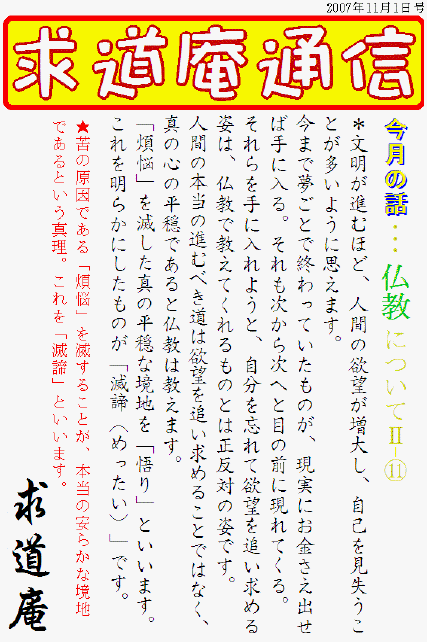 2007年11月1日号
求道庵通信
今月の話…仏教についてⅡ-⑪
＊文明が進むほど、人間の欲望が増大し、自己を見失うこ
とが多いように思えます。
今まで夢ごとで終わっていたものが、現実にお金さえ出せ
ば手に入る。それも次から次へと目の前に現れてくる。
それらを手に入れようと、自分を忘れて欲望を追い求める
姿は、仏教で教えてくれるものとは正反対の姿です。
人間の本当の進むべき道は欲望を追い求めることではなく、
真の心の平穏であると仏教は教えます。
「煩悩」を滅した真の平穏な境地を「悟り」といいます。
これを明らかにしたものが「滅諦（めったい）」です。
★苦の原因である「煩悩」を滅することが、本当の安らかな境地
であるという真理。これを「滅諦」といいます。
求道庵